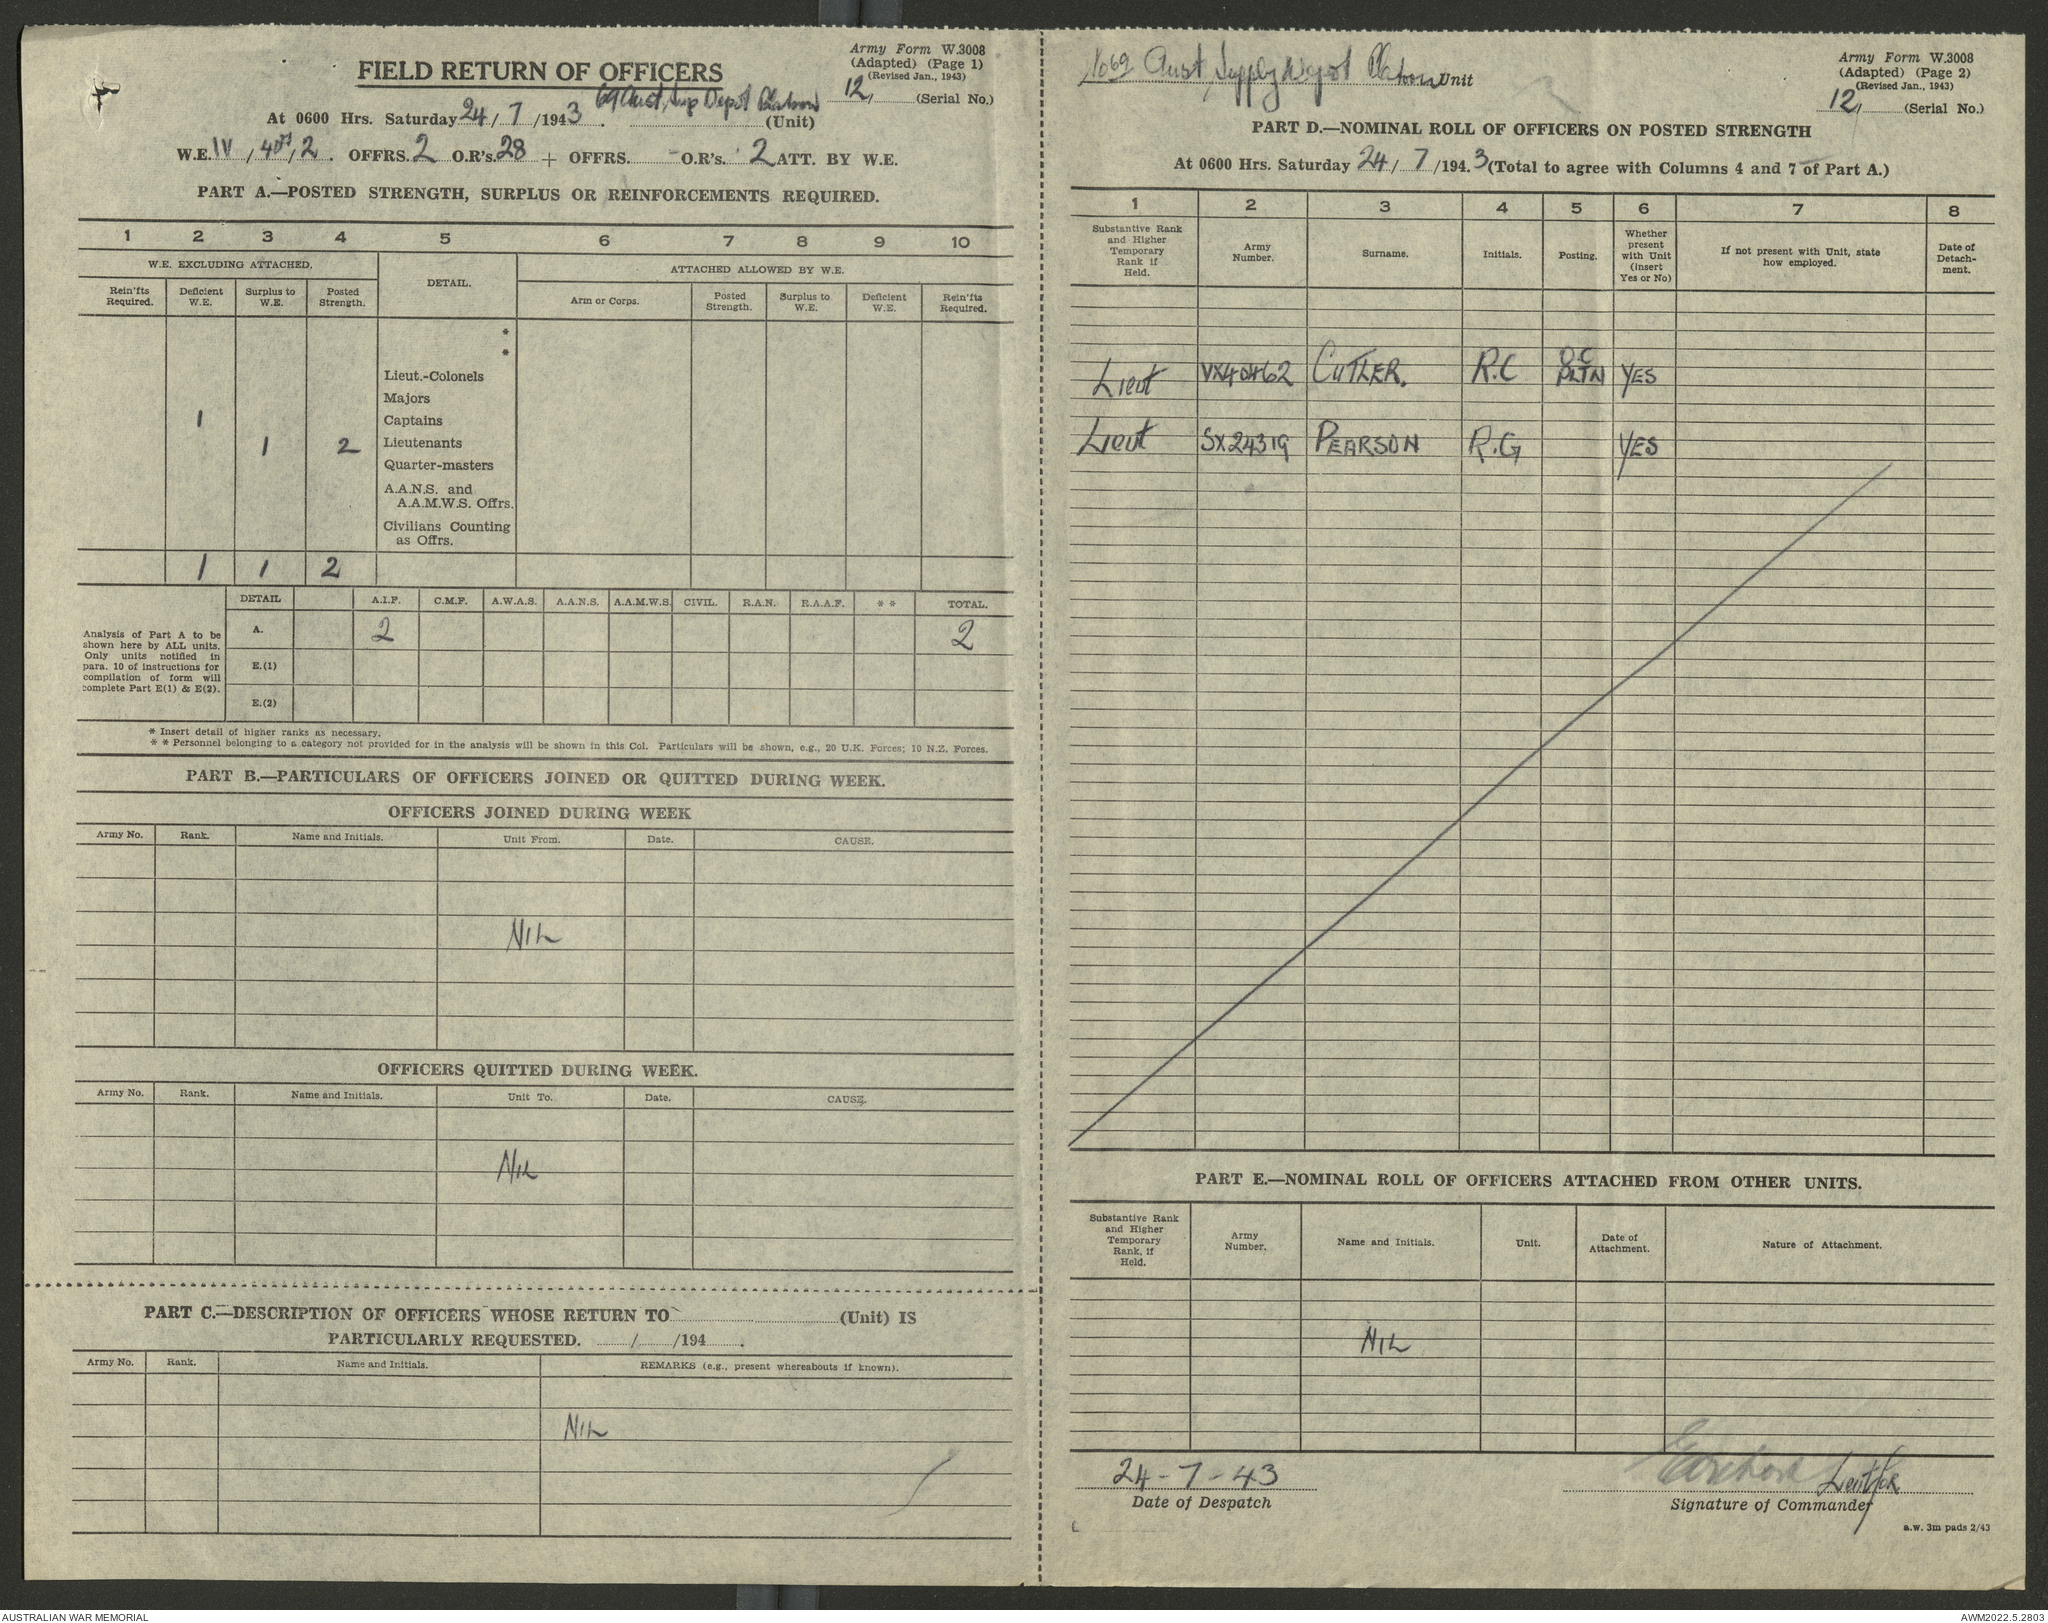 Army Form W.3008
(Adapted) (Page 1)
(Revised Jan., 1943)
FIELD RETURN OF OFFICERS
12, (Serial No.)
At 0600 Hrs. Saturday 24/7/1943. 69 Aust, Sup Depot Platoon (Unit)
W.E. IV, 2. OFFRS. 2 O.R's. 28 + OFFRS. - O.R's. 2 ATT. BY W.E.
PART A.—POSTED STRENGTH, SURPLUS OR REINFORCEMENTS REQUIRED.
1 2 3 4 5 6 7 8 9 10
W.E. EXCLUDING ATTACHED. DETAIL. ATTACHED ALLOWED BY W.E.
Rein'fts Required. Deficient W.E. Surplus to W.E. Posted Strength. Arm or Corps. Posted Strength. Surplus to W.E. Deficient W.E. Rein'fts Required.
*
*
Lieut.-Colonels
Majors
1 Captains
1 2 Lieutenants
Quarter-masters
A.A.N.S. and
A.A.M.W.S. Offrs.
Civilians Counting
as Offrs.
1 1 2
DETAIL A.I.F. C.M.F. A.W.A.S. A.A.N.S. A.A.M.W.S. CIVIL. R.A.N. R.A.A.F. * * TOTAL.
Analysis of Part A to be
shown here by ALL units.
Only units notified in
para. 10 of instructions for
compilation of form will
complete Part E(1) & E(2).
A. 2 2
E.(1)
E.(2)
* Insert detail of higher ranks as necessary.
* * Personnel belonging to a category not provided for in the analysis will be shown in this Col. Particulars will be shown, e.g., 20 U.K. Forces; 10 N.Z. Forces.
PART B.—PARTICULARS OF OFFICERS JOINED OR QUITTED DURING WEEK.
OFFICERS JOINED DURING WEEK
Army No. Rank. Name and Initials. Unit From. Date. CAUSE.
NIL
OFFICERS QUITTED DURING WEEK.
Army No. Rank. Name and Initials. Unit To. Date. CAUSE.
NIL
PART C.—DESCRIPTION OF OFFICERS WHOSE RETURN TO (Unit) IS
PARTICULARLY REQUESTED. / /194 .
Army No. Rank. Name and Initials. REMARKS (e.g., present whereabouts if known).
NIL
No 69 Aust, Supply Depot Platoon Unit
Army Form W.3008
(Adapted) (Page 2)
(Revised Jan., 1943)
12, (Serial No.)
PART D.—NOMINAL ROLL OF OFFICERS ON POSTED STRENGTH
At 0600 Hrs. Saturday 24/7/1943 (Total to agree with Columns 4 and 7 of Part A.)
1 2 3 4 5 6 7 8
Substantive Rank and Higher Temporary Rank if Held. Army Number. Surname. Initials. Posting. Whether present with Unit (insert Yes or No) If not present with Unit, state how employed. Date of Detach-ment.
Lieut VX40462 CUTLER. R.C O.C PLTN YES
Lieut SX24319 PEARSON R.G YES
PART E.—NOMINAL ROLL OF OFFICERS ATTACHED FROM OTHER UNITS.
Substantive Rank and Higher Temporary Rank, if Held. Army Number. Name and Initials. Unit. Date of Attachment. Nature of Attachment.
NIL
24-7-43
Date of Despatch
Lieut for
Signature of Commander
a.w. 3m pads 2/43
AUSTRALIAN WAR MEMORIAL
AWM2022.5.2803